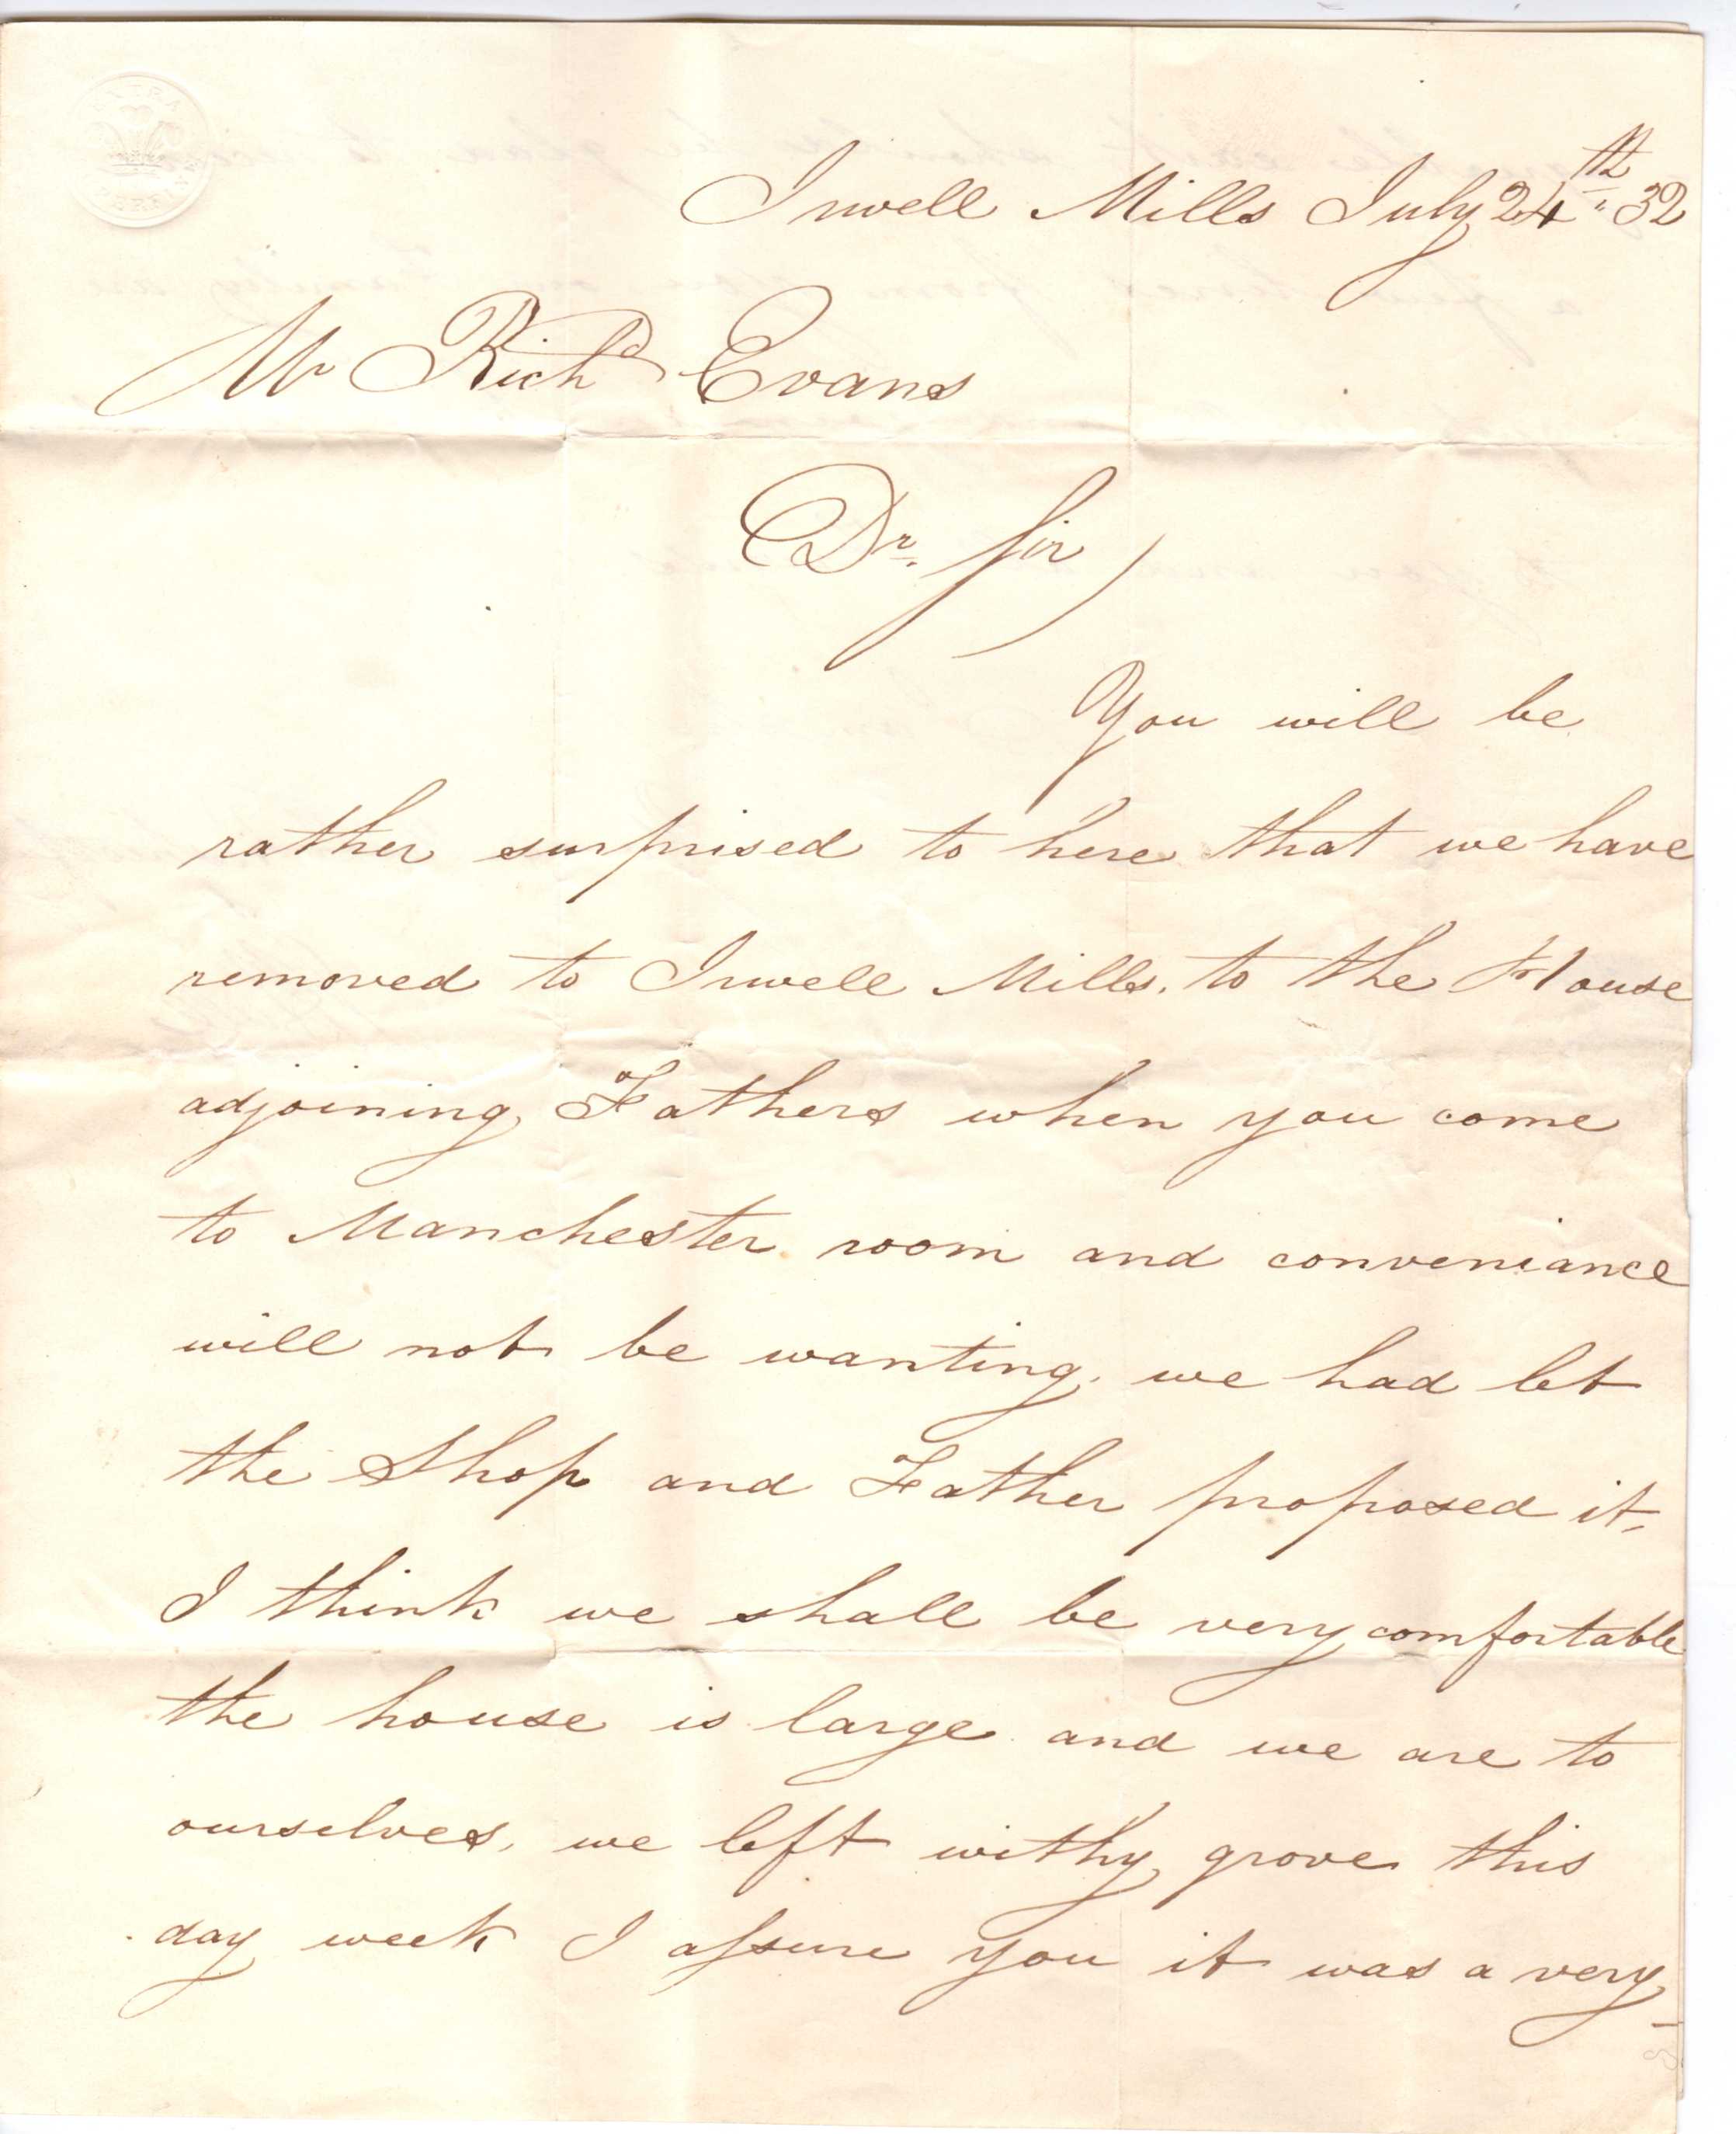 EXTRA
Irwell Mills July 24th 32
Mr Richd Evans
Dr. Sir
You will be
rather surprised to here that we have
removed to Irwell Mills. to the House
adjoining Fathers when you come
to Manchester room and conveniance
will not be wanting. we had let
the Shop and Father proposed it.
I think we shall be very comfortable
the house is large and we are to
ourselves. we left withy grove this
day week I assure you it was a very